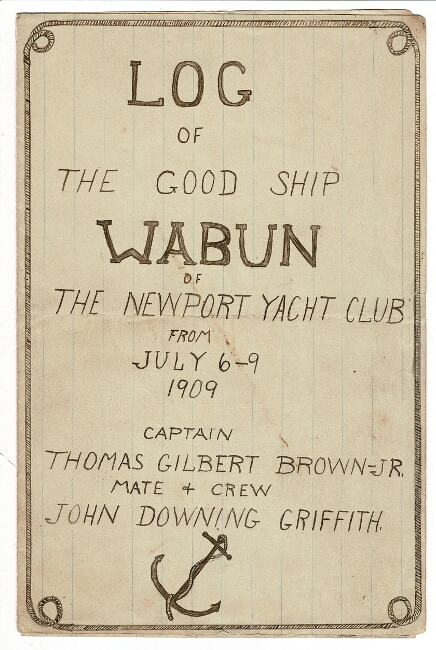 LOG
OF
THE GOOD SHIP
WABUN
OF
THE NEWPORT YACHT CLUB
FROM
JULY 6-9
1909
CAPTAIN
THOMAS GILBERT BROWN-JR.
MATE & CREW
JOHN DOWNING GRIFFITH.